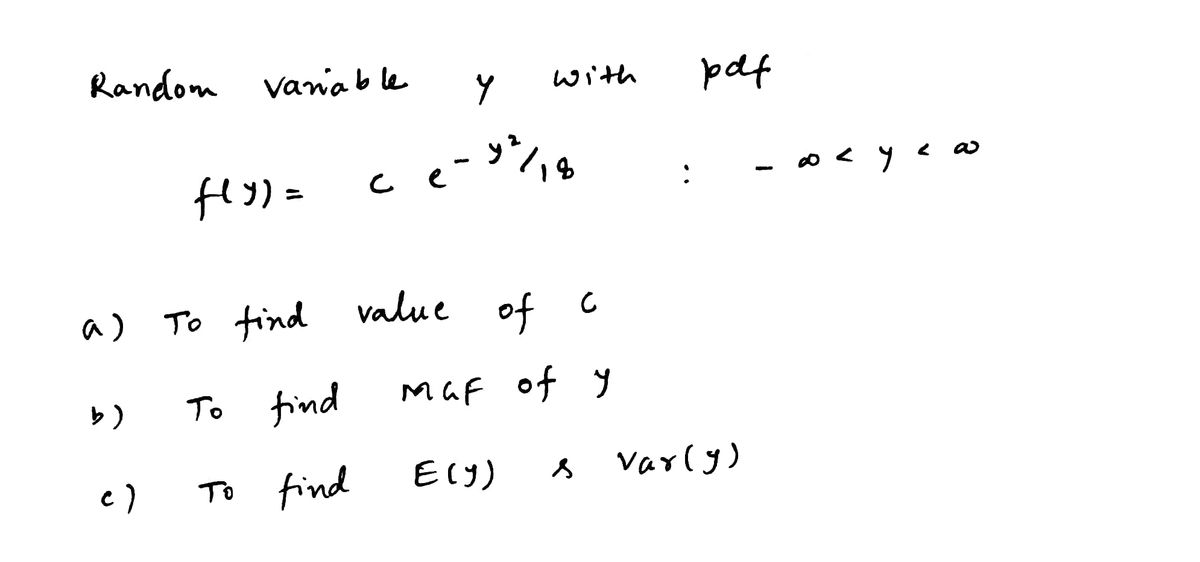 Random variable y with pdf
f(y) = c e^{-y²/18} : -∞ < y < ∞
a) To find value of c
b) To find MGF of y
c) To find E(y) & Var(y)